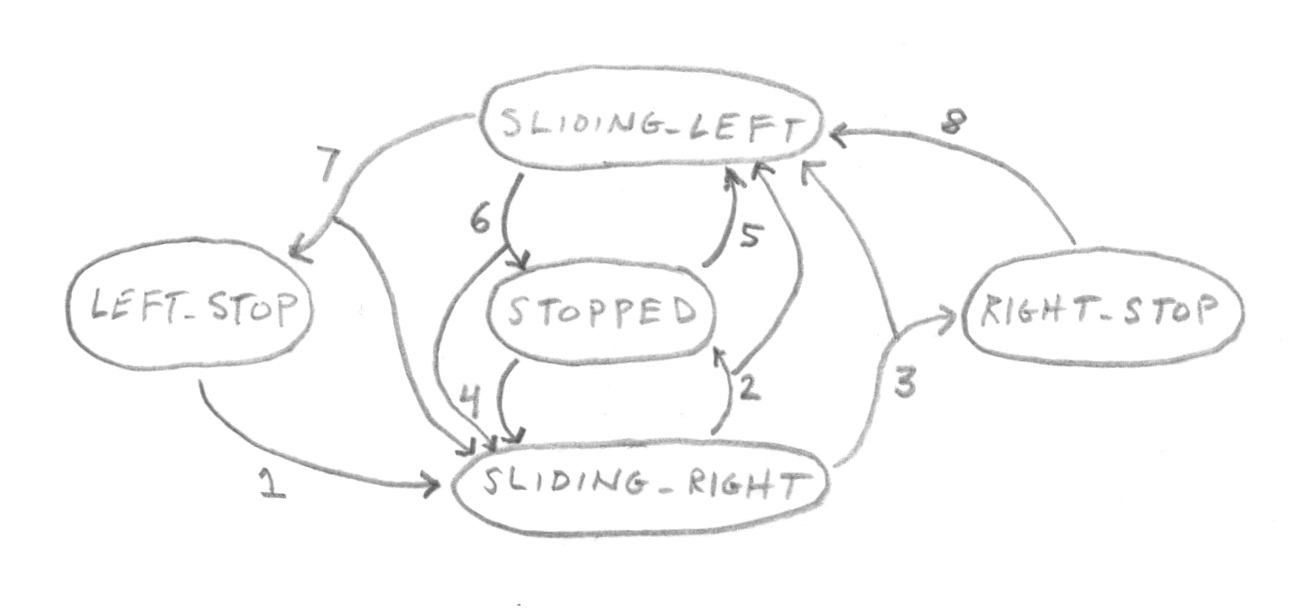 SLIDING_LEFT
8
7
6
5
LEFT_STOP
STOPPED
RIGHT_STOP
4
2
3
1
SLIDING_RIGHT